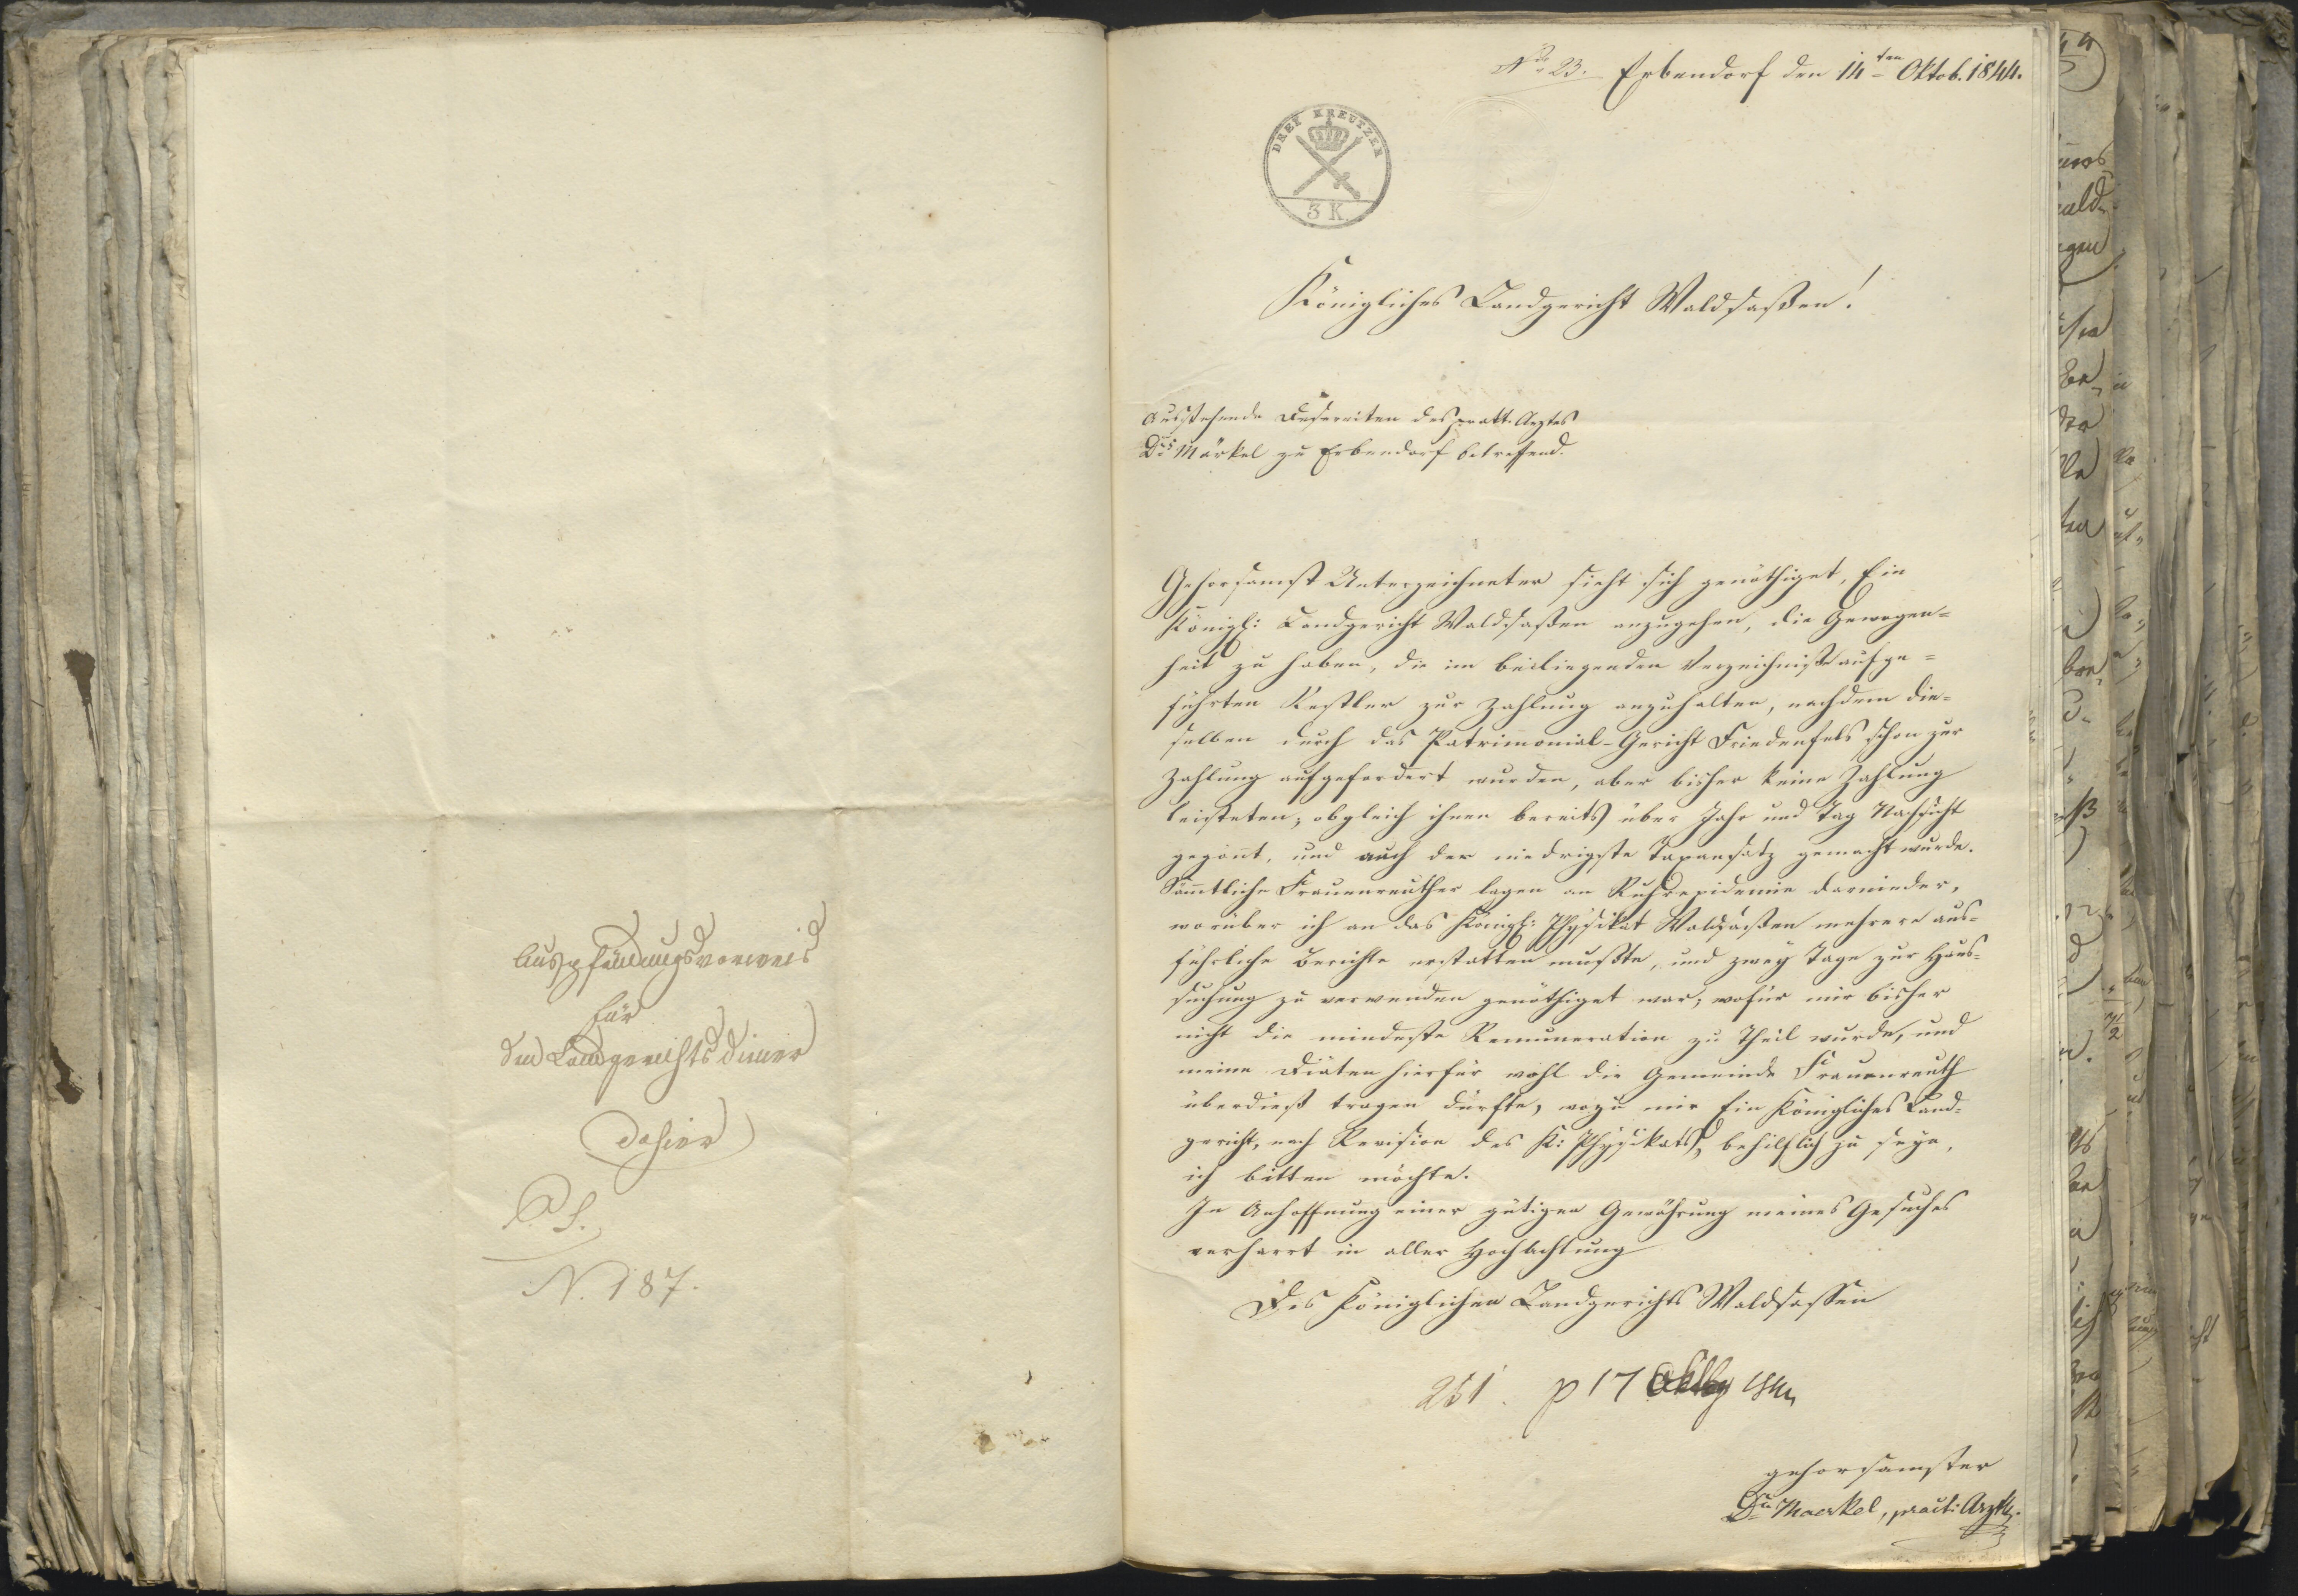 Auspfändungsvorweis
für
den Landgerichtsdiener
dahier
N. 187.
No 23. Erbendorf den 14ten Oktob. 1844.
DREY KREUTZER
3 K.
Königliches Landgericht Waldsaßen!
Ausstehende Deserviten des prakt. Arztes
Drs Märkel zu Erbendorf betreffend.
Gehorsamst Unterzeichneter sieht sich genöthiget, Ein
Königl: Landgericht Waldsaßen anzugehen, die Gewogen=
heit zu haben, die im beiliegenden Verzeichniße aufge=
führten Restler zur Zahlung anzuhalten, nachdem die=
selben durch das Patrimonial-Gericht Friedenfels schon zur
Zahlung aufgefordert wurden, aber bisher keine Zahlung
leisteten; obgleich ihnen bereits über Jahr und Tag Nachsicht
gegönt, und auch der niedrigste Taxansatz gemacht wurde.
Sämtliche Frauenreuther lagen an Ruhrepidemie darnieder,
worüber ich an das Königl: Physikat Waldsaßen mehrere aus=
führliche Berichte erstatten mußte, und zwey Tage zur Haus=
suchung zu verwenden genöthiget war; wofür mir bisher
nicht die mindeste Remuneration zu Theil wurde, und
meine Diäten hierfür wohl die Gemeinde Frauenreuth
überdieß tragen dürfte, wozu mir Ein Königliches Land=
gericht, nach Revision des K: Physikats, behilflich zu seyn,
ich bitten möchte.
In Anhoffnung einer gütigen Gewährung meines Gesuches
verharrt in aller Hochachtung
Des Königlichen Landgerichts Waldsassen
261. p 17 1844
gehorsamster
Dr Maerkel, pract: Arzt.